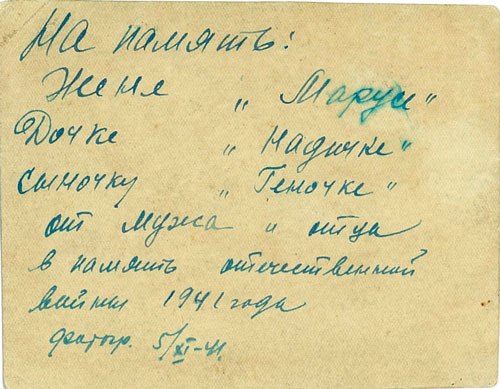 На память:
Жене „ Маруси"
Дочке „ Надичке"
сыночку „ Геночке"
от мужа и отца
в память отечественной
войны 1941 года
фотогр. 5/XI-41.